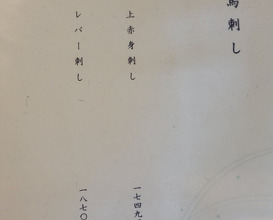 馬刺し
上赤身刺し
一七四九
レバー刺し
一八七〇